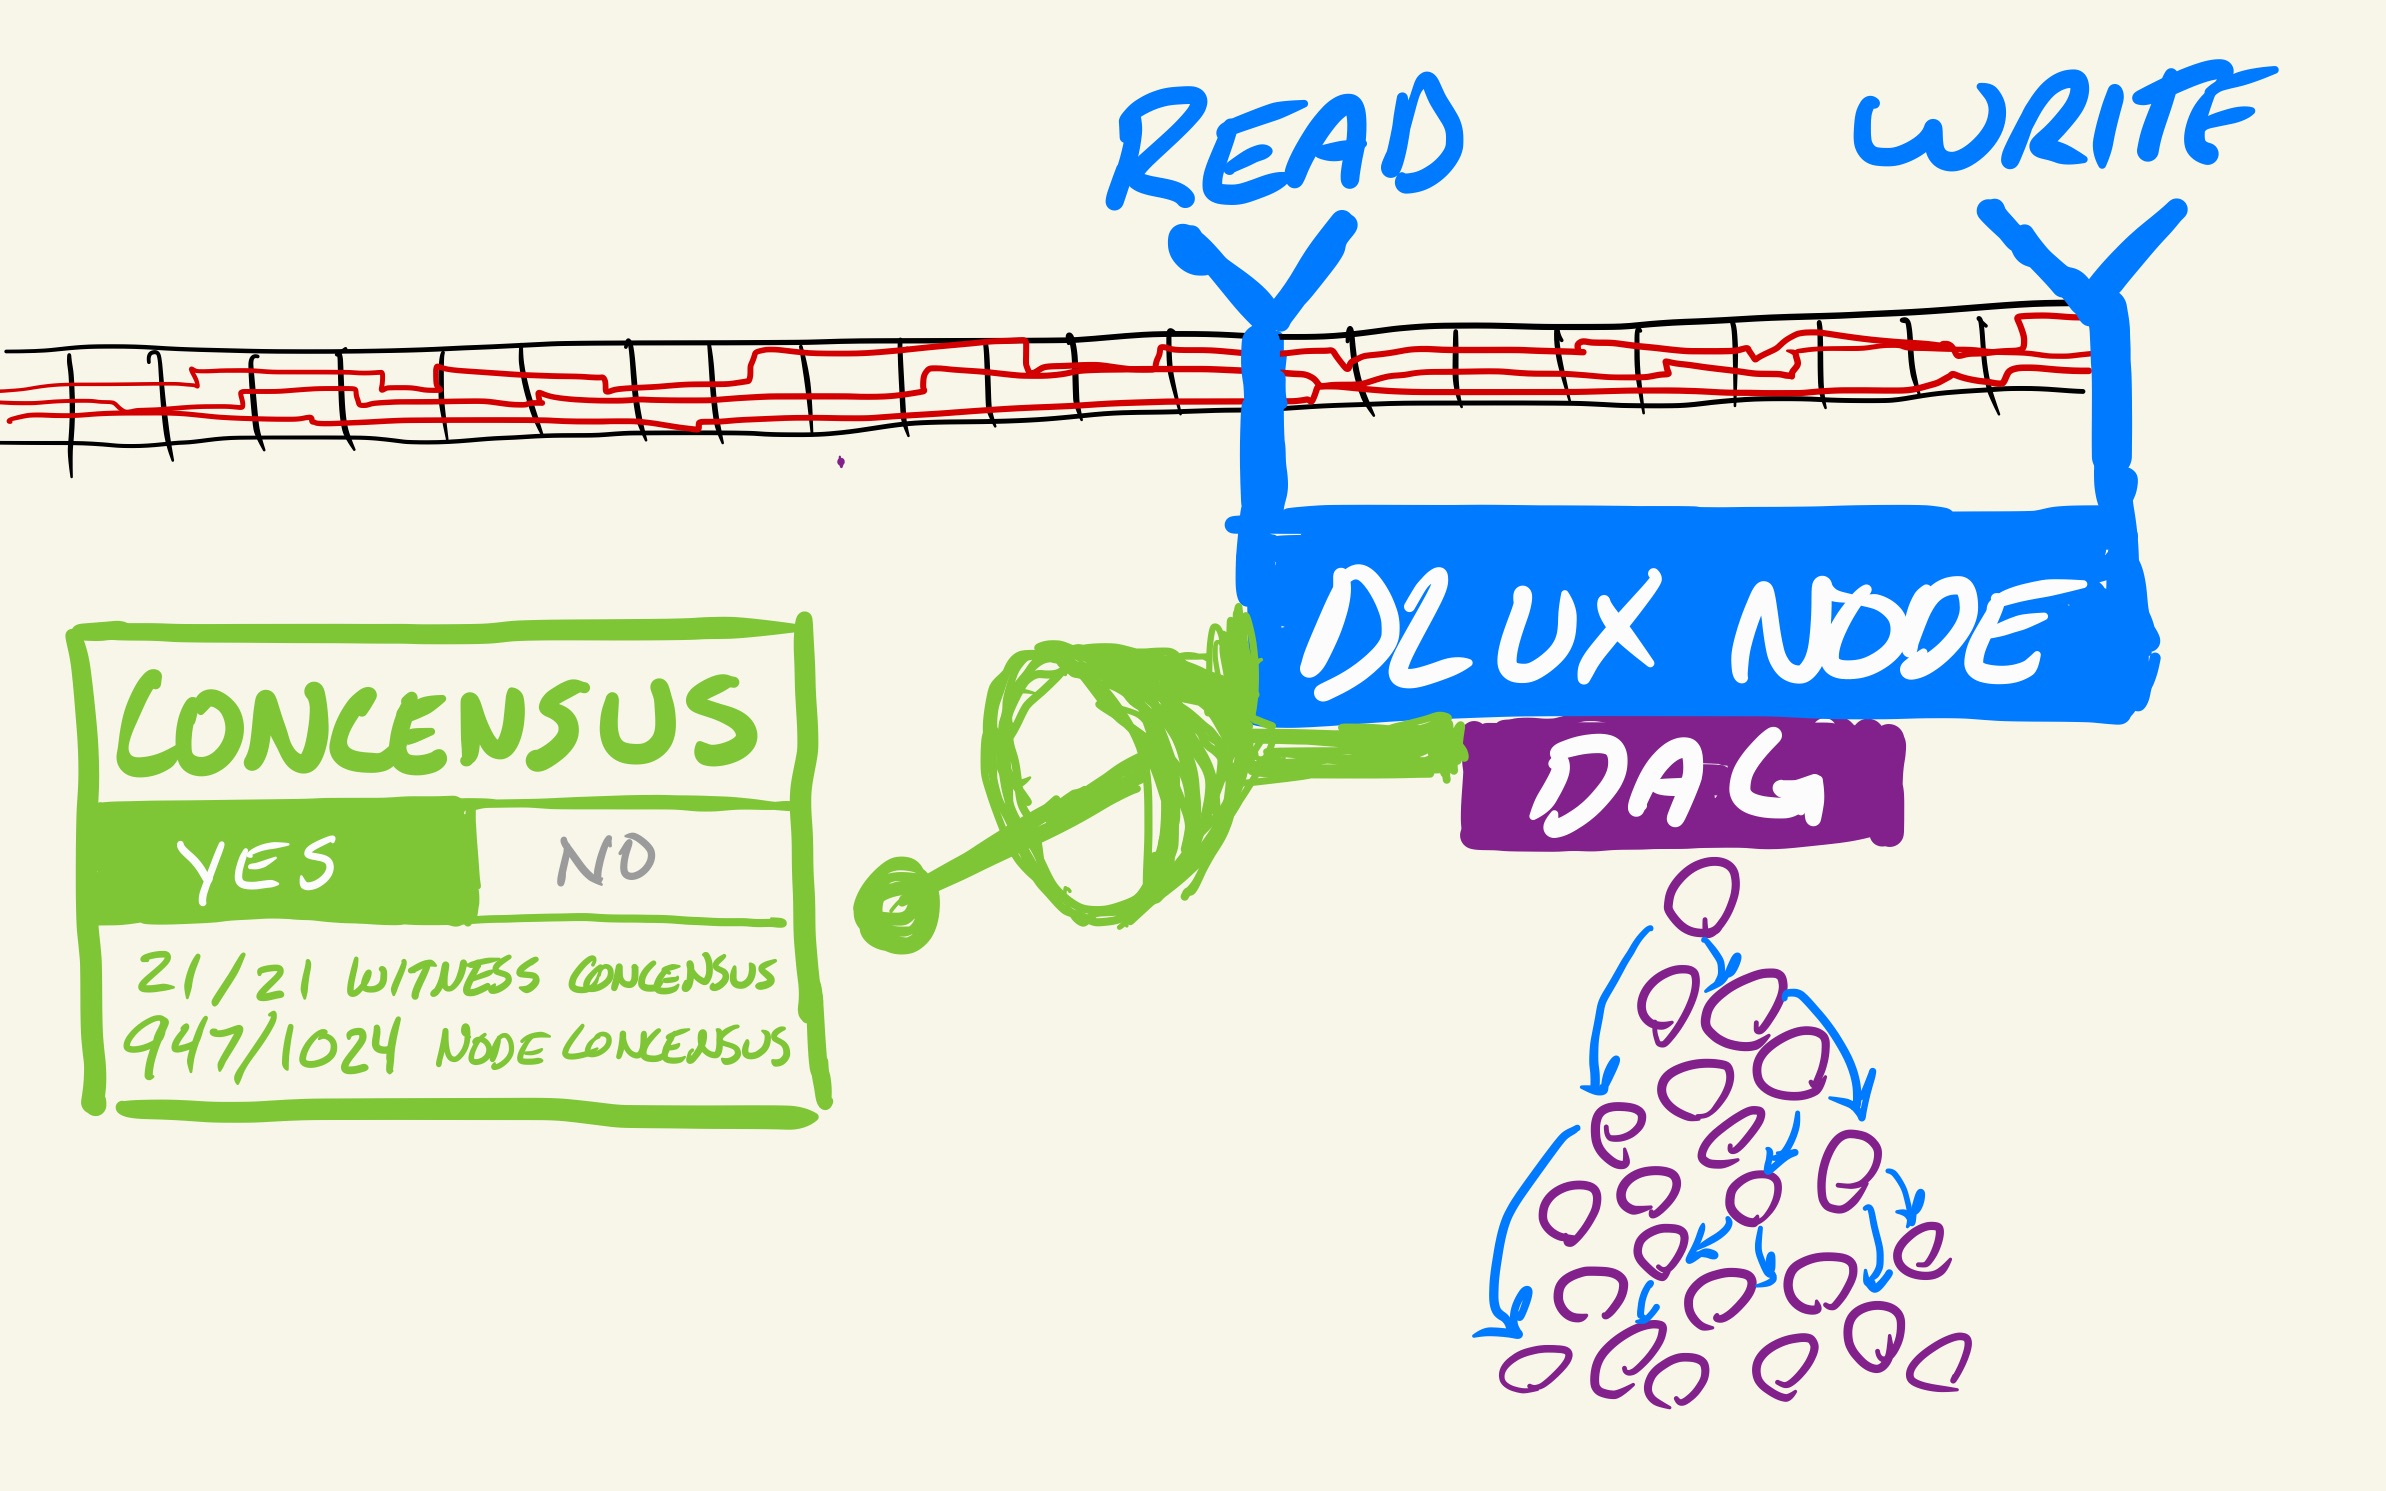 READ
WRITE
DLUX NODE
DAG
CONCENSUS
YES
NO
21/21 WITNESS CONCENSUS
947/1024 NODE CONCENSUS